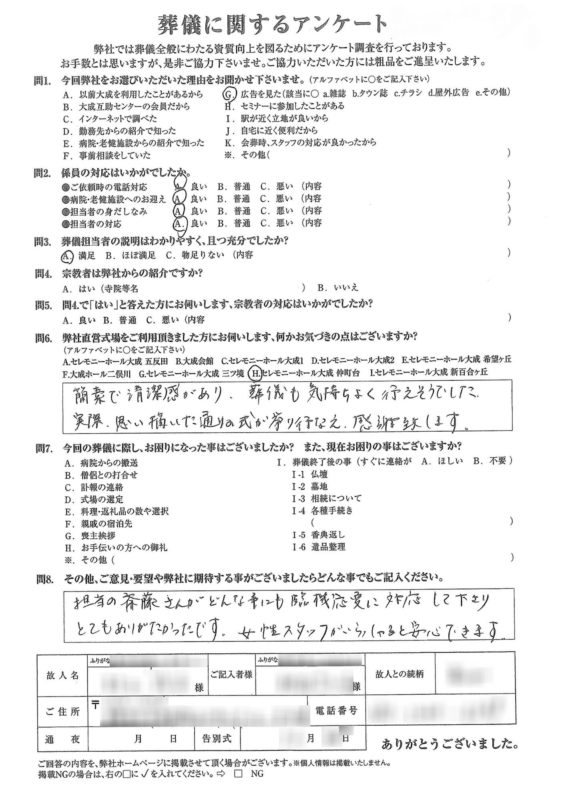 葬儀に関するアンケート
弊社では葬儀全般にわたる資質向上を図るためにアンケート調査を行っております。
お手数とは思いますが、是非ご協力下さいませ。ご協力いただいた方には粗品をご進呈いたします。
問1. 今回弊社をお選びいただいた理由をお聞かせ下さいませ。(アルファベットに○をご記入下さい)
A. 以前大成を利用したことがあるから G. 広告を見た(該当に○ a.雑誌 b.タウン誌 c.チラシ d.屋外広告 e.その他)
B. 大成互助センターの会員だから H. セミナーに参加したことがある
C. インターネットで調べた I. 駅が近く立地が良いから
D. 勤務先からの紹介で知った J. 自宅に近く便利だから
E. 病院・老健施設からの紹介で知った K. 会葬時、スタッフの対応が良かったから
F. 事前相談をしていた ※. その他( )
問2. 係員の対応はいかがでしたか。
●ご依頼時の電話対応 A. 良い B. 普通 C. 悪い (内容 )
●病院・老健施設へのお迎え A. 良い B. 普通 C. 悪い (内容 )
●担当者の身だしなみ A. 良い B. 普通 C. 悪い (内容 )
●担当者の対応 A. 良い B. 普通 C. 悪い (内容 )
問3. 葬儀担当者の説明はわかりやすく、且つ充分でしたか?
A. 満足 B. ほぼ満足 C. 物足りない (内容 )
問4. 宗教者は弊社からの紹介ですか?
A. はい (寺院等名 ) B. いいえ
問5. 問4.で「はい」と答えた方にお伺いします、宗教者の対応はいかがでしたか?
A. 良い B. 普通 C. 悪い (内容 )
問6. 弊社直営式場をご利用頂きました方にお伺いします、何かお気づきの点はございますか?
(アルファベットに○をご記入下さい)
A.セレモニーホール大成 五反田 B.大成会館 C.セレモニーホール大成1 D.セレモニーホール大成2 E.セレモニーホール大成 希望ヶ丘
F.大成ホール二俣川 G.セレモニーホール大成 三ツ境 H.セレモニーホール大成 仲町台 I.セレモニーホール大成 新百合ヶ丘
簡素で清潔感があり、葬儀も気持ちよく行えそうでした。
実際、思い描いた通りの式が挙り行なえ、感謝致します。
問7. 今回の葬儀に際し、お困りになった事はございましたか? また、現在お困りの事はございますか?
A. 病院からの搬送 I. 葬儀終了後の事 (すぐに連絡が A. ほしい B. 不要 )
B. 僧侶との打合せ I-1 仏壇
C. 訃報の連絡 I-2 墓地
D. 式場の選定 I-3 相続について
E. 料理・返礼品の数や選択 I-4 各種手続き
F. 親戚の宿泊先 ( )
G. 喪主挨拶 I-5 香典返し
H. お手伝いの方への御礼 I-6 遺品整理
※. その他 ( )
問8. その他、ご意見・要望や弊社に期待する事がございましたらどんな事でもご記入ください。
担当の斎藤さんがどんな事にも臨機応変に対応して下さり
とてもありがたかったです。女性スタッフがいらっしゃると安心できます。
ふりがな ふりがな
故人名 様 ご記入者様 様 故人との続柄
ご住所 〒 電話番号
通夜 月 日 告別式 月 日 ありがとうございました。
ご回答の内容を、弊社ホームページに掲載させて頂く場合がございます。※個人情報は掲載いたしません。
掲載NGの場合は、右の□に✓を入れてください。⇨ □ NG